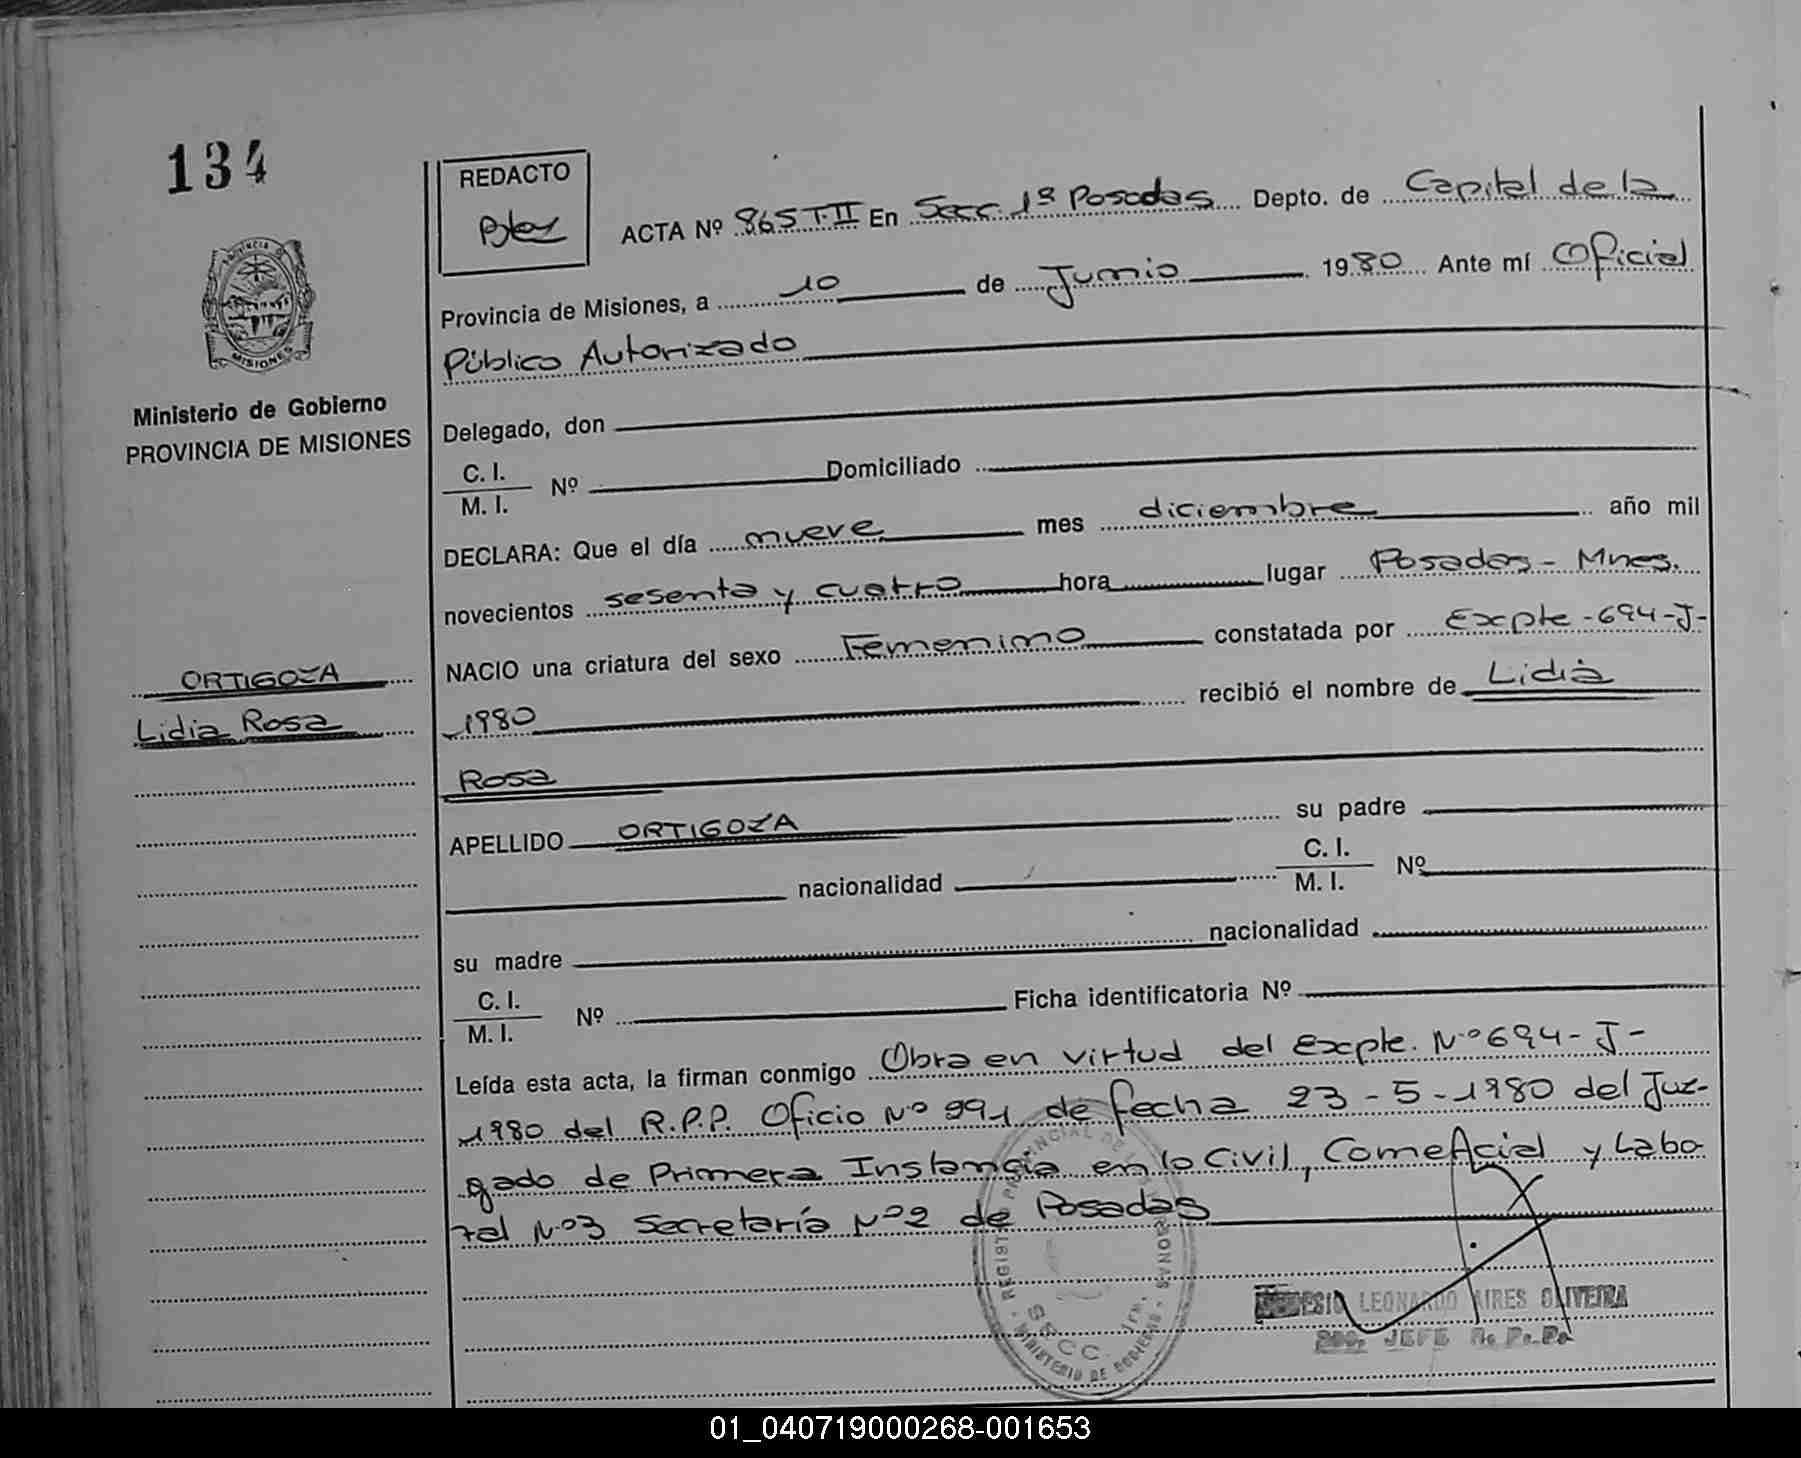 134
REDACTO
PROVINCIA DE
MISIONES
Ministerio de Gobierno
PROVINCIA DE MISIONES
ORTIGOZA
Lidia Rosa
ACTA Nº 865 T.II En Secc. 1ª Posadas Depto. de Capital de la
Provincia de Misiones, a 10 de Junio 1980 Ante mí Oficial
Público Autorizado
Delegado, don
C. I.
M. I. Nº Domiciliado
DECLARA: Que el día nueve mes diciembre año mil
novecientos sesenta y cuatro hora lugar Posadas - Mnes.
NACIO una criatura del sexo Femenino constatada por Expte - 694 - J -
1980 recibió el nombre de Lidia
Rosa
APELLIDO ORTIGOZA su padre
nacionalidad C. I.
M. I. Nº
su madre nacionalidad
C. I.
M. I. Nº Ficha identificatoria Nº
Leída esta acta, la firman conmigo Obra en virtud del Expte. Nº 694 - J -
1980 del R.P.P. Oficio Nº 991 de fecha 23 - 5 - 1980 del Juz-
gado de Primera Instancia en lo Civil, Comercial y Labo-
ral Nº 3 Secretaría Nº 2 de Posadas
REGISTRO PROVINCIAL DE LAS PERSONAS
SECC. 1ra.
MINISTERIO DE GOBIERNO
LEONARDO AIRES OLIVEIRA
JEFE R. P. P.
01_040719000268-001653